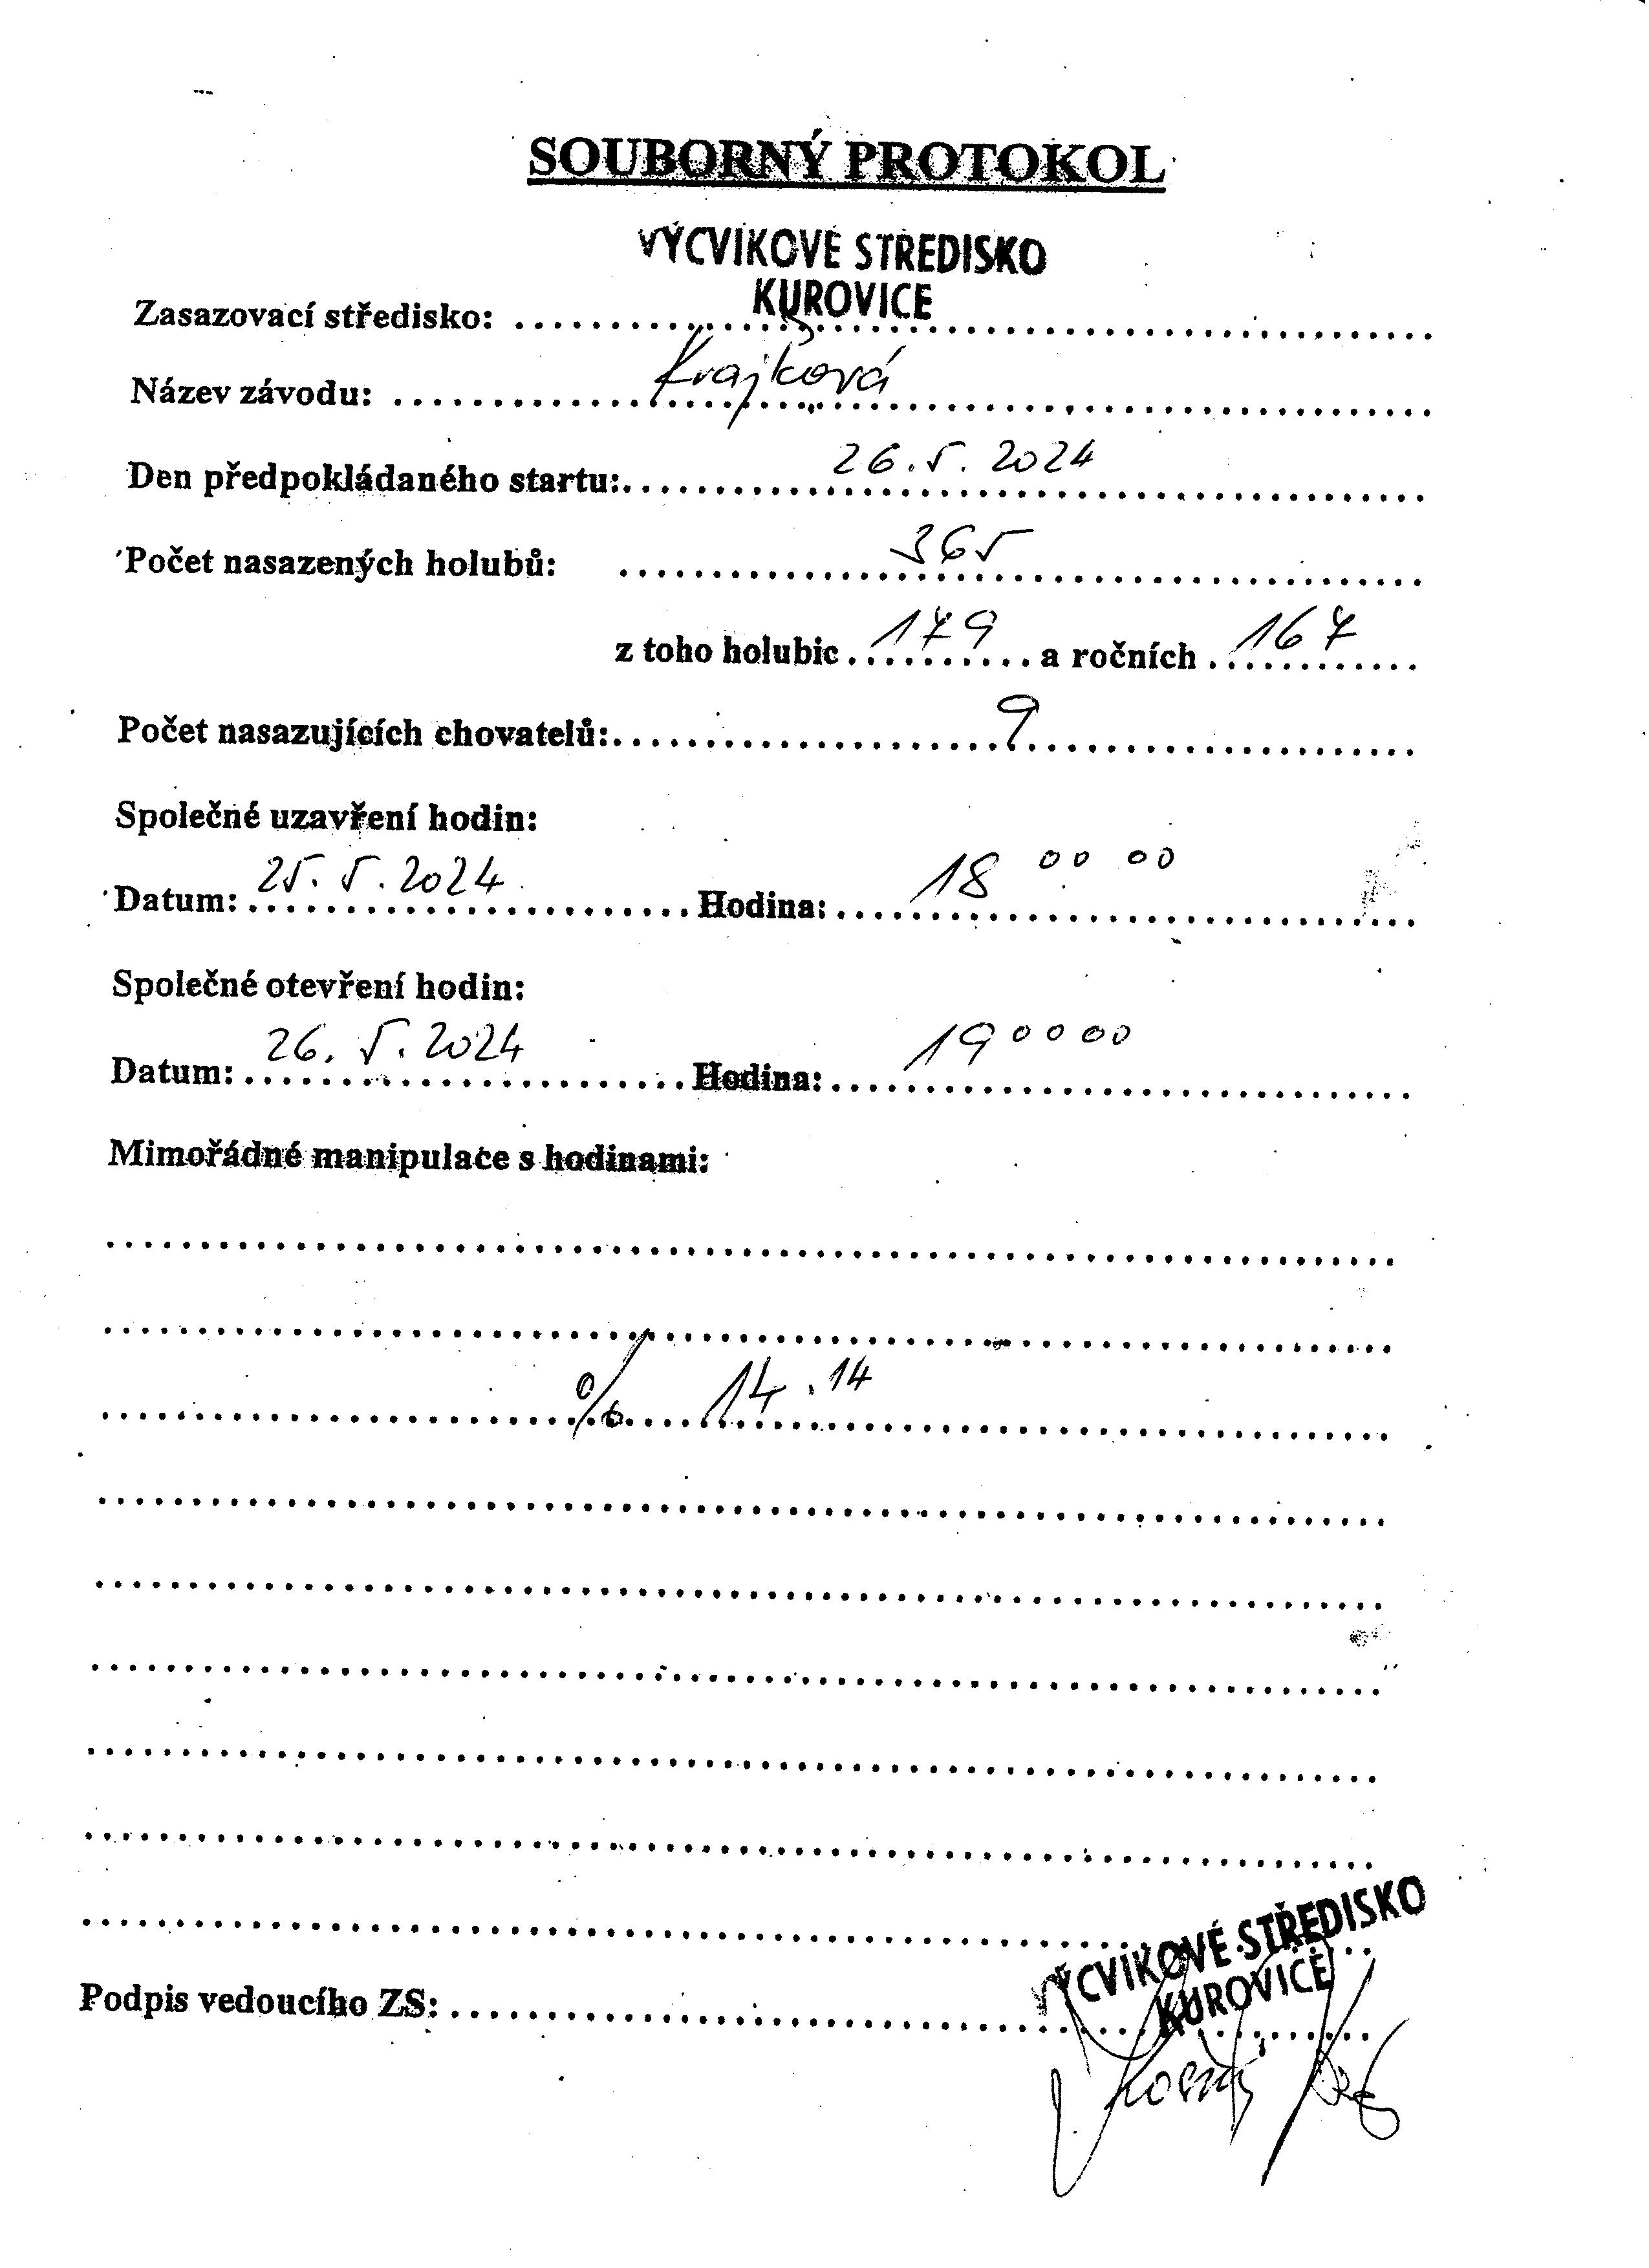 SOUBORNÝ PROTOKOL
VÝCVIKOVÉ STŘEDISKO
KUROVICE
Zasazovací středisko:
Název závodu: Krajková
Den předpokládaného startu: 26. 5. 2024
Počet nasazených holubů: 365
z toho holubic 179 a ročních 167
Počet nasazujících chovatelů: 9
Společné uzavření hodin:
Datum: 25. 5. 2024 Hodina: 18 00 00
Společné otevření hodin:
Datum: 26. 5. 2024 Hodina: 19 00 00
Mimořádné manipulace s hodinami:
% 14.14
VÝCVIKOVÉ STŘEDISKO
KUROVICE
Podpis vedoucího ZS: